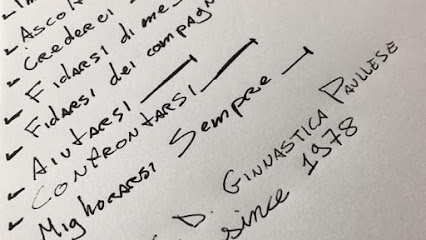 Ascol
Crederci
Fidarsi di me
Fidarsi dei compagn
Aiutarsi
Confrontarsi
Migliorarsi Sempre
S.D. Ginnastica Paullese
since 1978